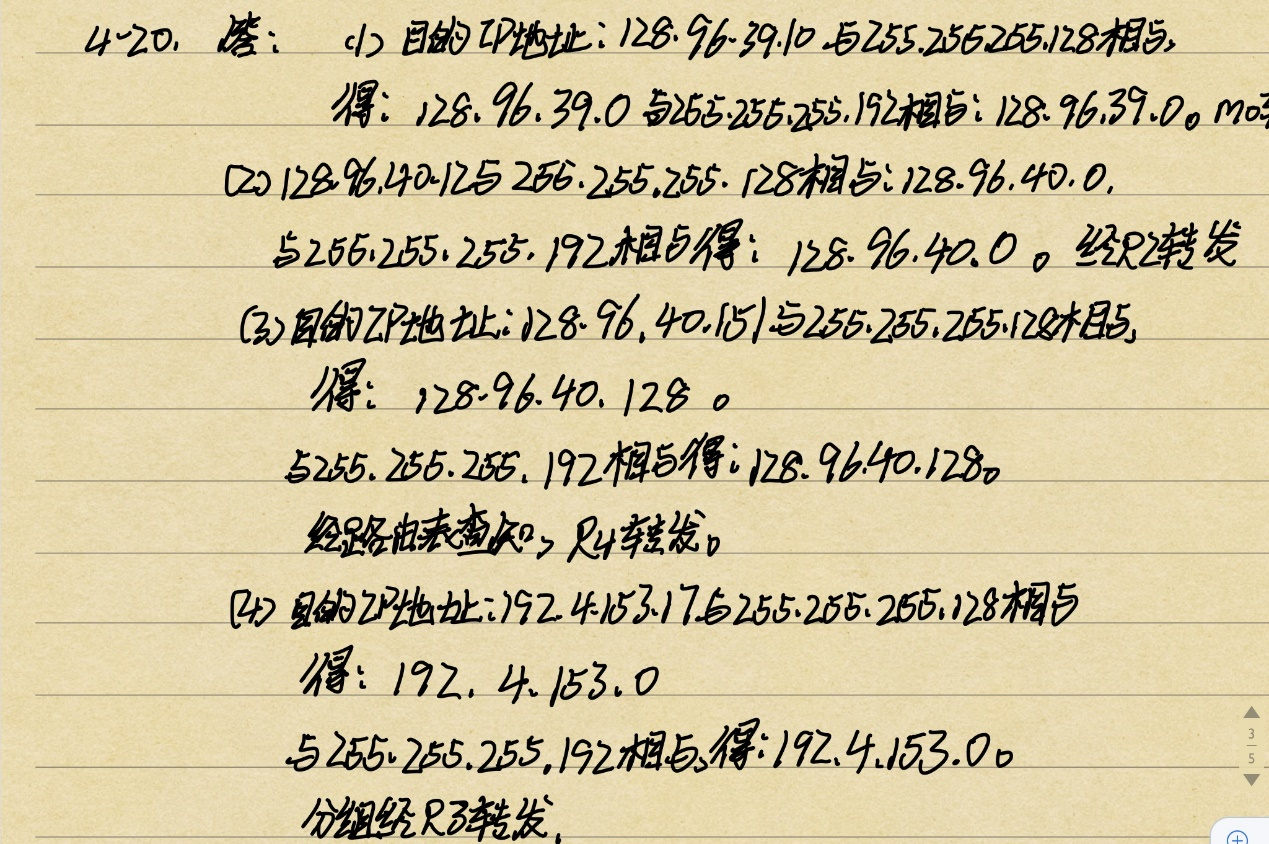 4-20. 答: (1) 目的IP地址:128.96.39.10与255.255.255.128相与,
得: 128.96.39.0 与255.255.255.192相与:128.96.39.0。m0
(2)128.96.40.12与255.255.255.128相与:128.96.40.0,
与255.255.255.192相与得: 128.96.40.0。经R2转发
(3)目的IP地址:128.96.40.151与255.255.255.128相与,
得: 128.96.40.128。
与255.255.255.192相与得:128.96.40.128。
经路由表查知,R4转发。
(4) 目的IP地址:192.4.153.17与255.255.255.128相与
得: 192.4.153.0
与255.255.255.192相与,得:192.4.153.0。
分组经R3转发.
3
5